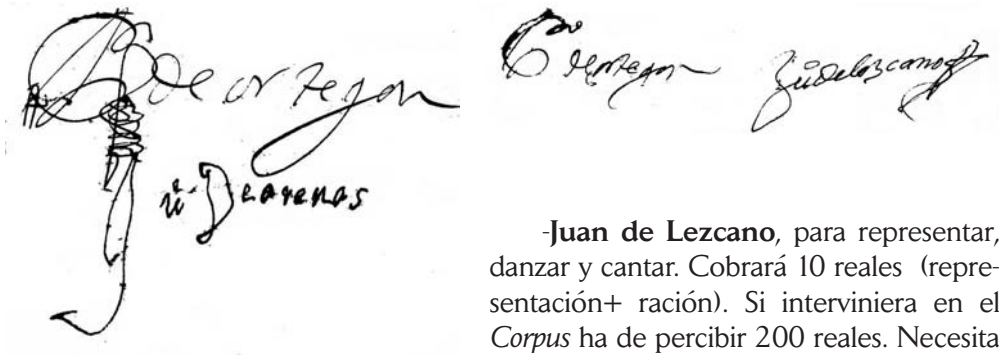 de ortegon
De arenas
-Juan de Lezcano, para representar,
danzar y cantar. Cobrará 10 reales (repre-
sentación+ ración). Si interviniera en el
Corpus ha de percibir 200 reales. Necesita